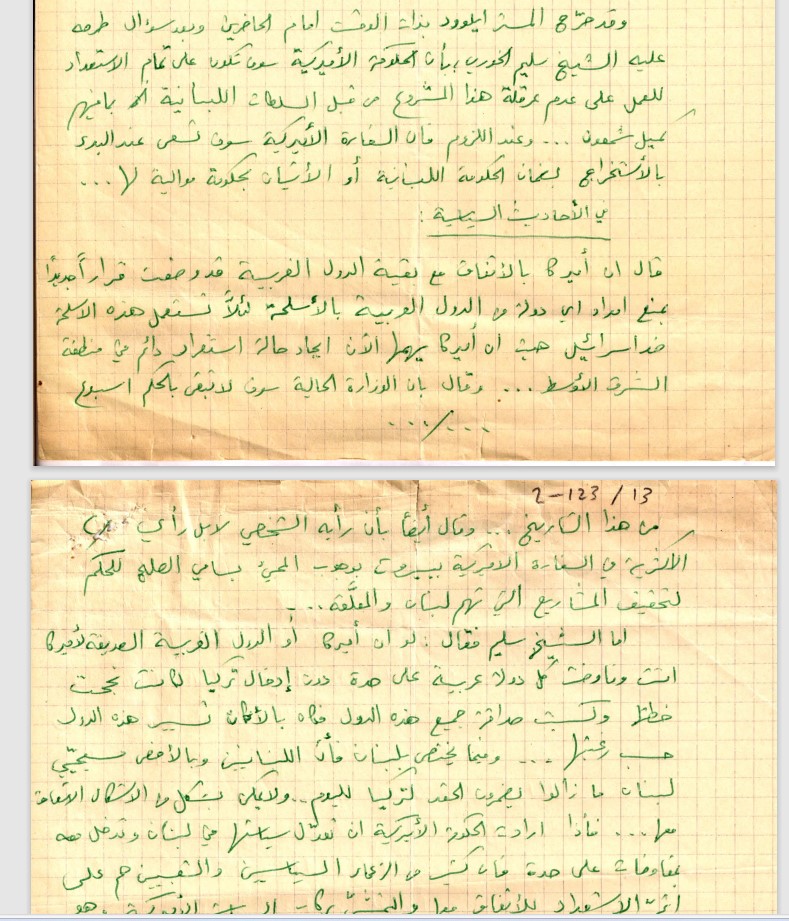 وقد صرّح المستر ايلوود بذات الوقت امام الحاضرين وبعد سؤال طرحه
عليه الشيخ سليم الخوري، بأن الحكومة الأميركية سوف تكون على تمام الاستعداد
للعمل على عدم عرقلة هذا المشروع من قبل السلطات اللبنانية بما فيهم
كميل شمعون ... وعند اللزوم فان السفارة الأميركية سوف تسعى عند البدء
بالأستخراج لضمان الحكومة اللبنانية أو الأتيان بحكومة موالية لها ...
في الأحاديث السياسية :
قال ان أميركا بالأتفاق مع بقية الدول الغربية قد وضعت قراراً جديداً
بمنع امداد اي دولة من الدول العربية بالأسلحة لئلاّ تستعمل هذه الاسلحة
ضد اسرائيل حيث ان أميركا يهمها الآن ايجاد حالة استقرار دائم في منطقة
الشرق الأوسط ... وقال بان الوزارة الحالية سوف لا تبقى بالحكم اسبوع
.../...
2-123/13
من هذا التاريخ ... وقال أيضاً بأن رأيه الشخصي لا بل رأي
الأكثرية في السفارة الاميركية ببيروت بوجوب المجئ بسامي الصلح للحكم
لتحقيق المشاريع التي تهم لبنان والمعلّقة...
اما الشيخ سليم فقال : لو ان أميركا أو الدول الغربية الصديقة لأميركا
اتت وفاوضت كل دولة عربية على حدة دون إدخال تركيا لكانت نجحت
خطتها وكسبت صداقة جميع هذه الدول فكان بالأمكان تسيير هذه الدول
حسب رغبتها ... وفيما يختص بلبنان فأن اللبنانيين وبالأخص مسيحيّي
لبنان ما زالوا يضمرون الحقد لتركيا لليوم .. ولا يمكن بشكل من الاشكال الاتفاق
معها ... فأذا ارادت الحكومة الأميركية ان تعدّل سياستها في لبنان وتدخل معه
بمفاوضات على حدة فان كثير من الزعماء السياسيين والشعبيين هم على
اتمّ الاستعداد للأتفاق معها